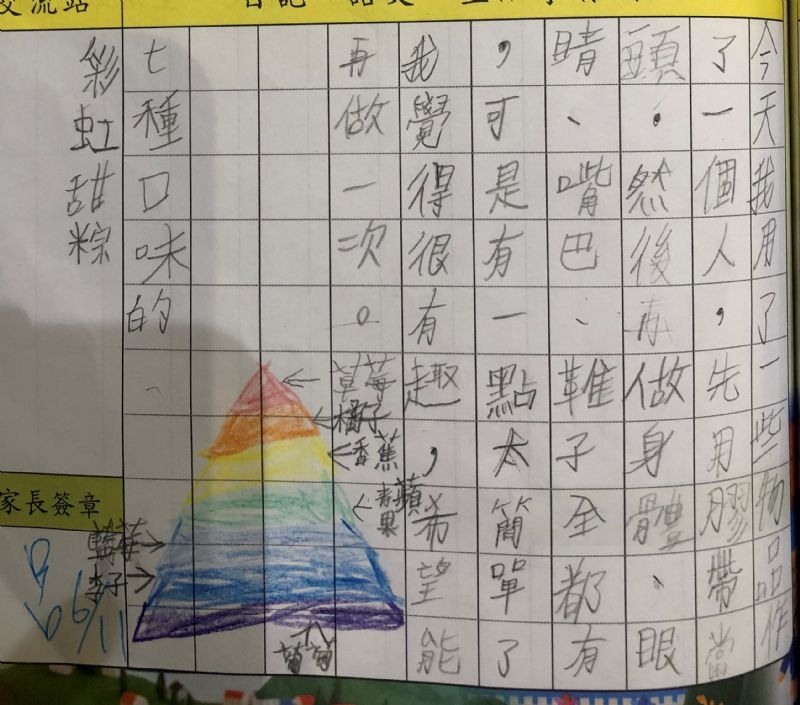 今天我用了一些物品作
了一個人，先用膠帶當
頭。然後再做身體、眼
睛、嘴巴、鞋子全都有
，可是有一點太簡單了
我覺得很有趣，希望能
再做一次。
草莓
橘子
香蕉
青蘋果
藍莓
李子
葡萄
七種口味的
彩虹甜粽
交流站
家長簽章
6/11